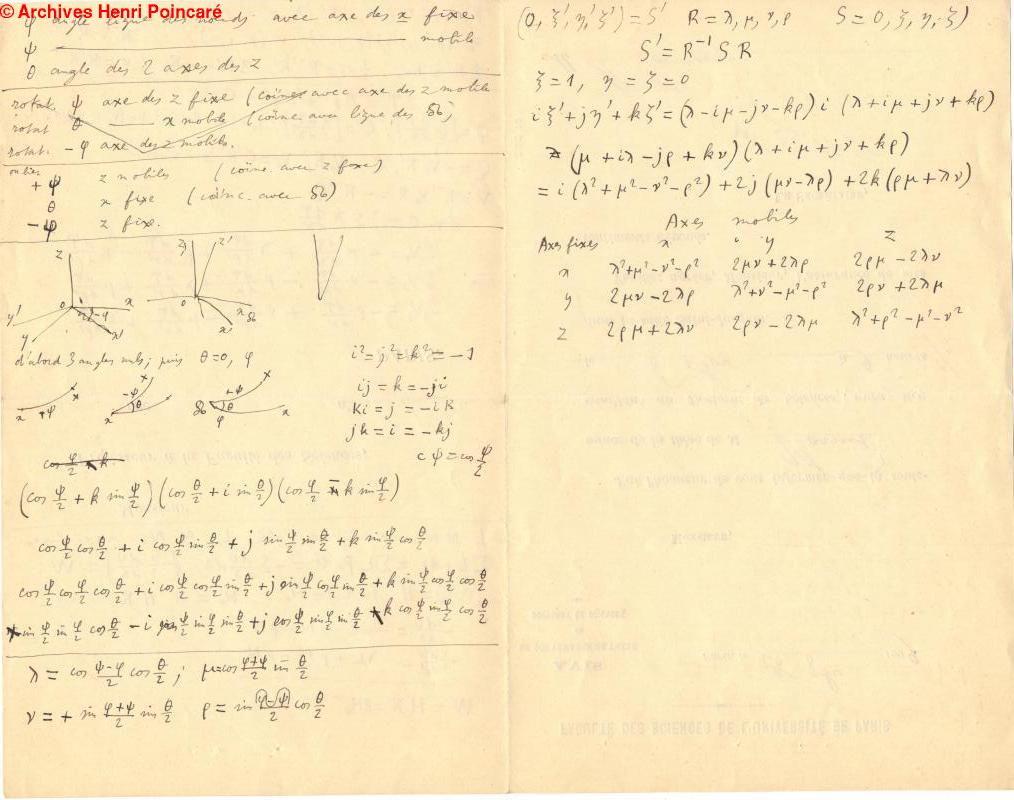 © Archives Henri Poincaré
φ angle ligne des nœuds avec axe des x fixe
ψ ——— mobile
θ angle des 2 axes des z
rotat. ψ axe des z fixe (coïnc. avec axe des z mobile
rotat θ —— x mobile (coïnc. avec ligne des ☊)
rotat. −φ axe des z mobile.
ou bien
+ ψ z mobiles (coïnc. avec z fixe)
θ x fixe (coïnc. avec ☊)
−φ z fixe.
z
o x
y' y x'
z z'
o x' ☊
d'abord 3 angles nuls; puis θ=0, φ
x +ψ x
x −ψ θ x
☊ +ψ θ φ x
i²=j²=k²=−1
ij = k = −ji
Ki = j = −iK
jk = i = −kj
c ψ = cos ψ/2
cos φ/2 + k
(cos ψ/2 + k sin ψ/2) (cos θ/2 + i sin θ/2) (cos φ/2 − k sin φ/2)
cos ψ/2 cos θ/2 + i cos ψ/2 sin θ/2 + j sin ψ/2 sin θ/2 + k sin ψ/2 cos θ/2
cos ψ/2 cos φ/2 cos θ/2 + i cos ψ/2 cos φ/2 sin θ/2 + j sin ψ/2 cos φ/2 sin θ/2 + k sin ψ/2 cos φ/2 cos θ/2
+ sin ψ/2 sin φ/2 cos θ/2 − i sin ψ/2 sin φ/2 sin θ/2 + j cos ψ/2 sin φ/2 sin θ/2 − k cos ψ/2 sin φ/2 cos θ/2
λ = cos (ψ−φ)/2 cos θ/2 ; μ = cos (φ+ψ)/2 sin θ/2
ν = + sin (φ+ψ)/2 sin θ/2 ρ = sin (φ−ψ)/2 cos θ/2
(0, ξ', η', ζ') = S' R = λ, μ, ν, ρ S = 0, ξ, η, ζ)
S' = R⁻¹ S R
ξ = 1, η = ζ = 0
iξ'+jη'+kζ' = (λ−iμ−jν−kρ) i (λ+iμ+jν+kρ)
(μ+iλ−jρ+kν) (λ+iμ+jν+kρ)
= i (λ²+μ²−ν²−ρ²) + 2j (μν−λρ) + 2k (ρμ+λν)
Axes mobiles
Axes fixes x y z
x λ²+μ²−ν²−ρ² 2μν+2λρ 2ρμ − 2λν
y 2μν−2λρ λ²+ν²−μ²−ρ² 2ρν + 2λμ
z 2ρμ+2λν 2ρν − 2λμ λ²+ρ²−μ²−ν²
FACULTÉ DES SCIENCES DE L'UNIVERSITÉ DE PARIS
AVIS